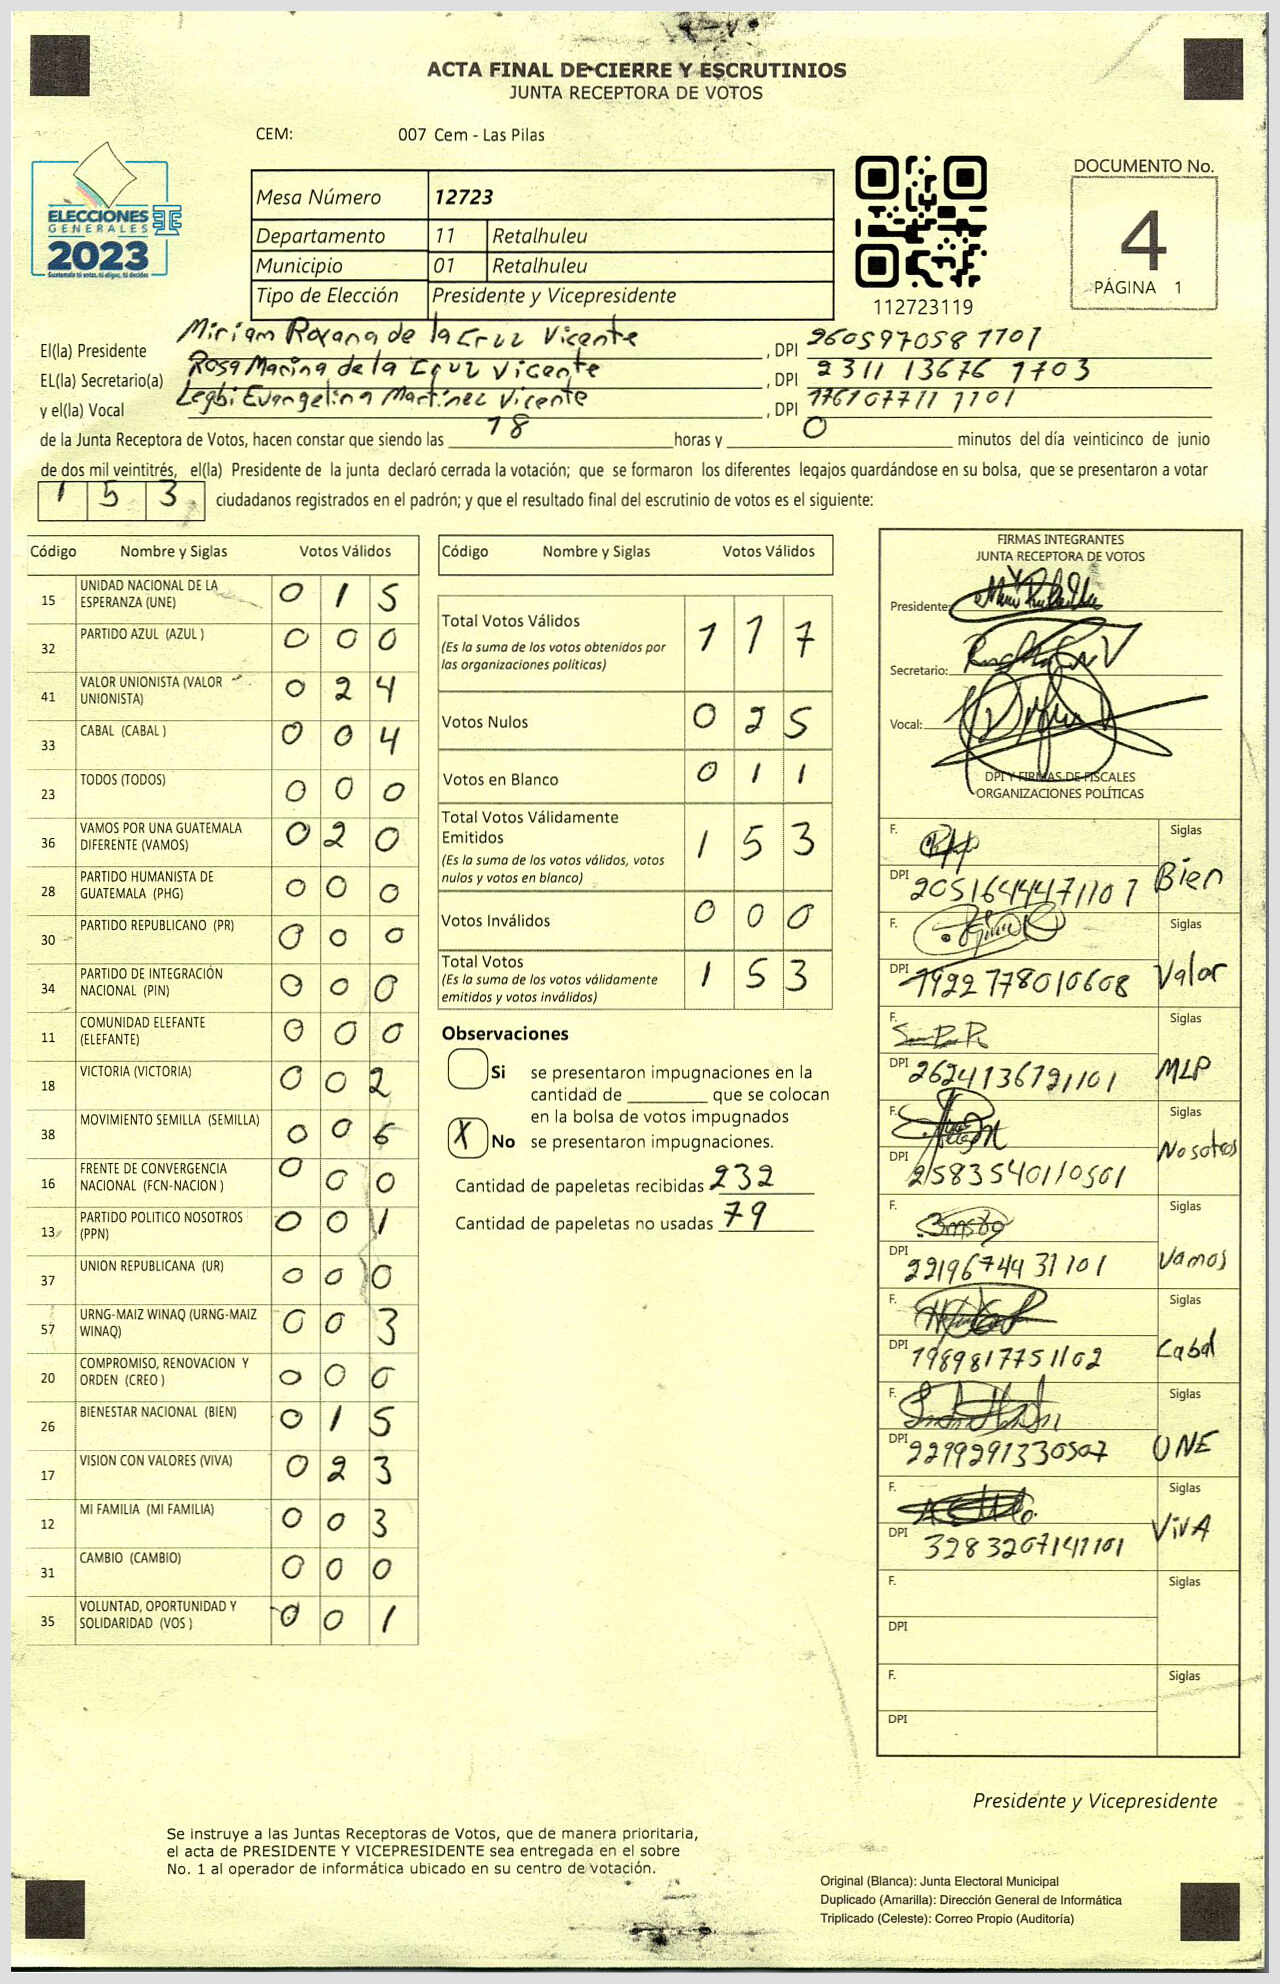 ACTA FINAL DE CIERRE Y ESCRUTINIOS
JUNTA RECEPTORA DE VOTOS
CEM: 007 Cem - Las Pilas
ELECCIONES
GENERALES
2023
Guatemala tú votas, tú eliges, tú decides
Mesa Número 12723
Departamento 11 Retalhuleu
Municipio 01 Retalhuleu
Tipo de Elección Presidente y Vicepresidente
112723119
DOCUMENTO No.
4
PÁGINA 1
El(la) Presidente Miriam Roxana de la Cruz Vicente , DPI 2605970581101
EL(la) Secretario(a) Rosa Marina de la Cruz Vicente , DPI 2311 13676 1703
y el(la) Vocal Legbi Evangelina Martínez Vicente , DPI 1761077111101
de la Junta Receptora de Votos, hacen constar que siendo las 18 horas y 0 minutos del día veinticinco de junio
de dos mil veintitrés, el(la) Presidente de la junta declaró cerrada la votación; que se formaron los diferentes legajos quardándose en su bolsa, que se presentaron a votar
153 ciudadanos registrados en el padrón; y que el resultado final del escrutinio de votos es el siguiente:
Código Nombre y Siglas Votos Válidos
15 UNIDAD NACIONAL DE LA ESPERANZA (UNE) 015
32 PARTIDO AZUL (AZUL ) 000
41 VALOR UNIONISTA (VALOR UNIONISTA) 024
33 CABAL (CABAL ) 004
23 TODOS (TODOS) 000
36 VAMOS POR UNA GUATEMALA DIFERENTE (VAMOS) 020
28 PARTIDO HUMANISTA DE GUATEMALA (PHG) 000
30 PARTIDO REPUBLICANO (PR) 000
34 PARTIDO DE INTEGRACIÓN NACIONAL (PIN) 000
11 COMUNIDAD ELEFANTE (ELEFANTE) 000
18 VICTORIA (VICTORIA) 002
38 MOVIMIENTO SEMILLA (SEMILLA) 006
16 FRENTE DE CONVERGENCIA NACIONAL (FCN-NACION ) 000
13 PARTIDO POLITICO NOSOTROS (PPN) 001
37 UNION REPUBLICANA (UR) 000
57 URNG-MAIZ WINAQ (URNG-MAIZ WINAQ) 003
20 COMPROMISO, RENOVACION Y ORDEN (CREO ) 000
26 BIENESTAR NACIONAL (BIEN) 015
17 VISION CON VALORES (VIVA) 023
12 MI FAMILIA (MI FAMILIA) 003
31 CAMBIO (CAMBIO) 000
35 VOLUNTAD, OPORTUNIDAD Y SOLIDARIDAD (VOS ) 001
Código Nombre y Siglas Votos Válidos
Total Votos Válidos 117
(Es la suma de los votos obtenidos por
las organizaciones políticas)
Votos Nulos 025
Votos en Blanco 011
Total Votos Válidamente
Emitidos 153
(Es la suma de los votos válidos, votos
nulos y votos en blanco)
Votos Inválidos 000
Total Votos 153
(Es la suma de los votos válidamente
emitidos y votos inválidos)
Observaciones
Si se presentaron impugnaciones en la
cantidad de ________ que se colocan
en la bolsa de votos impugnados
X No se presentaron impugnaciones.
Cantidad de papeletas recibidas 232
Cantidad de papeletas no usadas 79
FIRMAS INTEGRANTES
JUNTA RECEPTORA DE VOTOS
Presidente:
Secretario:
Vocal:
DPI Y FIRMAS DE FISCALES
ORGANIZACIONES POLÍTICAS
F. Siglas
DPI 2051644471107 Bien
F. Siglas
DPI 1922778010608 Valor
F. Siglas
DPI 2624136721101 MLP
F. Siglas
DPI 2583540110501 Nosotros
F. Siglas
DPI 2219674431101 Vamos
F. Siglas
DPI 1989817751102 Cabal
F. Siglas
DPI 2299291330507 UNE
F. Siglas
DPI 3283207141101 VivA
F. Siglas
DPI
F. Siglas
DPI
Presidente y Vicepresidente
Se instruye a las Juntas Receptoras de Votos, que de manera prioritaria,
el acta de PRESIDENTE Y VICEPRESIDENTE sea entregada en el sobre
No. 1 al operador de informática ubicado en su centro de votación.
Original (Blanca): Junta Electoral Municipal
Duplicado (Amarilla): Dirección General de Informática
Triplicado (Celeste): Correo Propio (Auditoría)